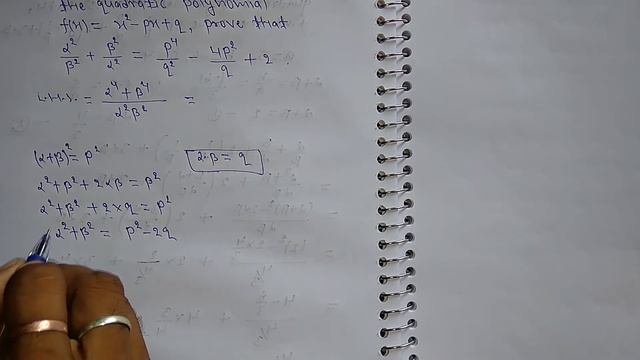 the quadratic polynomial
f(x) = x² - px + q, prove that
α²/β² + β²/α² = p⁴/q² - 4p²/q + 2.
L.H.S. = α⁴ + β⁴/α²β² =
(α+β)² = p²
α·β = q
α² + β² + 2αβ = p²
α² + β² + 2×q = p²
α² + β² = p² - 2q